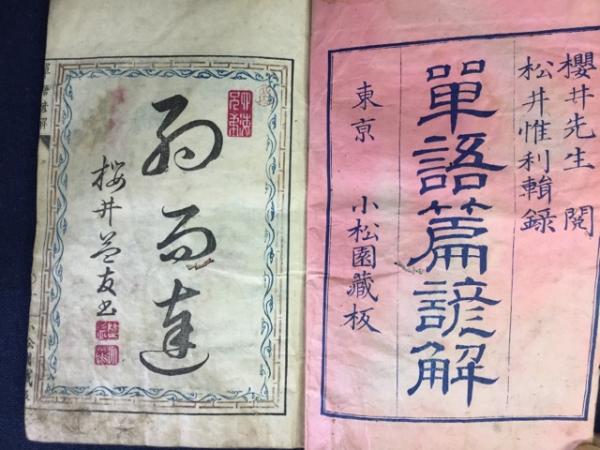 櫻井先生 閲
松井惟利輯録
單語篇諺解
東亰 小松園藏板
約而達
桜井益友書